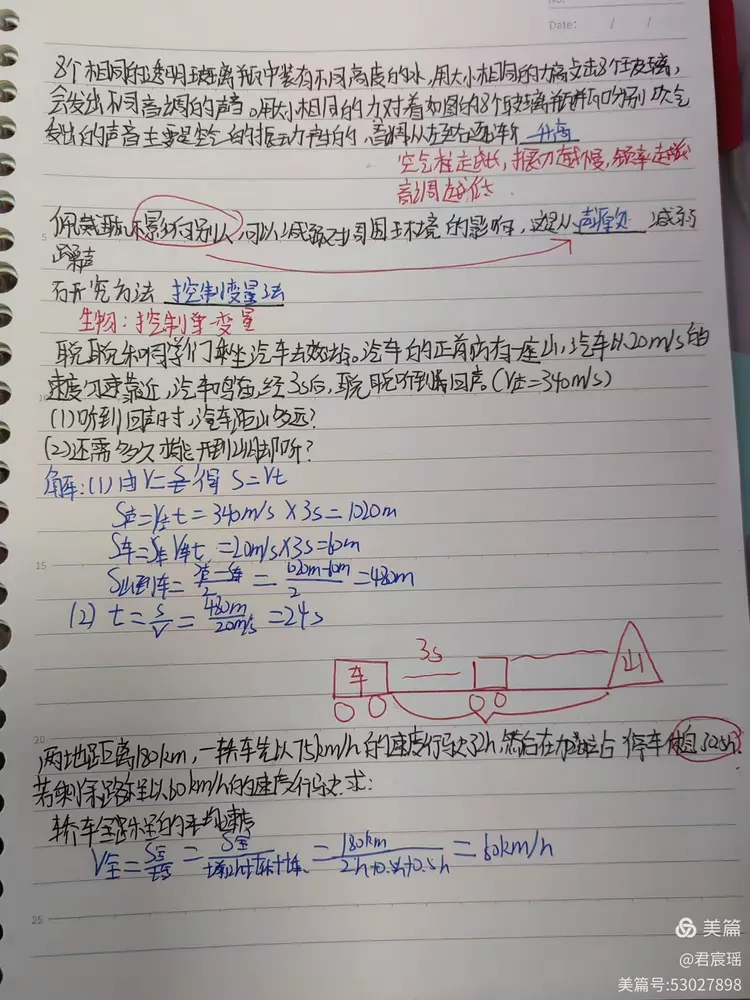 Date: / /
8个相同的透明玻璃瓶中装有不同高度的水,用大小相同的力敲击8个玻璃,
会发出不同音调的声音。用大小相同的力对着如图的8个玻璃瓶瓶口分别吹气
发出的声音主要是空气的振动产生的,音调从左至右逐渐 升高
空气柱越长,振动越慢,频率越低
音调越低
佩戴 不影响别人,可以减弱对周围环境的影响,这是从 声源处 减弱
噪声
研究方法 控制变量法
生物:控制单一变量
聪聪和同学们乘坐汽车去 。汽车的正前方有一座山,汽车以20m/s的
速度匀速靠近,汽车鸣笛,经3s后,聪聪听到回声。(V声=340m/s)
(1)听到回声时,汽车距山多远?
(2)还需多久才能开到山脚 ?
解:(1)由V=s/t得 S=Vt
S声=V声t=340m/s×3s=1020m
S车=V车t=20m/s×3s=60m
S山到车=(S声-S车)/2=(1020m-60m)/2=480m
(2) t=s/v=480m/20m/s=24s
3s
车
山
15
20
两地距离180km,一轿车先以75km/h的速度行驶2h,然后在加油站 停车休息
若剩余路程以60km/h的速度行驶 求:
轿车全路程的平均速度
V全=S全/t全=S全/ =180km/(2h+0.5h+0.5h)=60km/h
25
美篇
@君宸瑶
美篇号:53027898